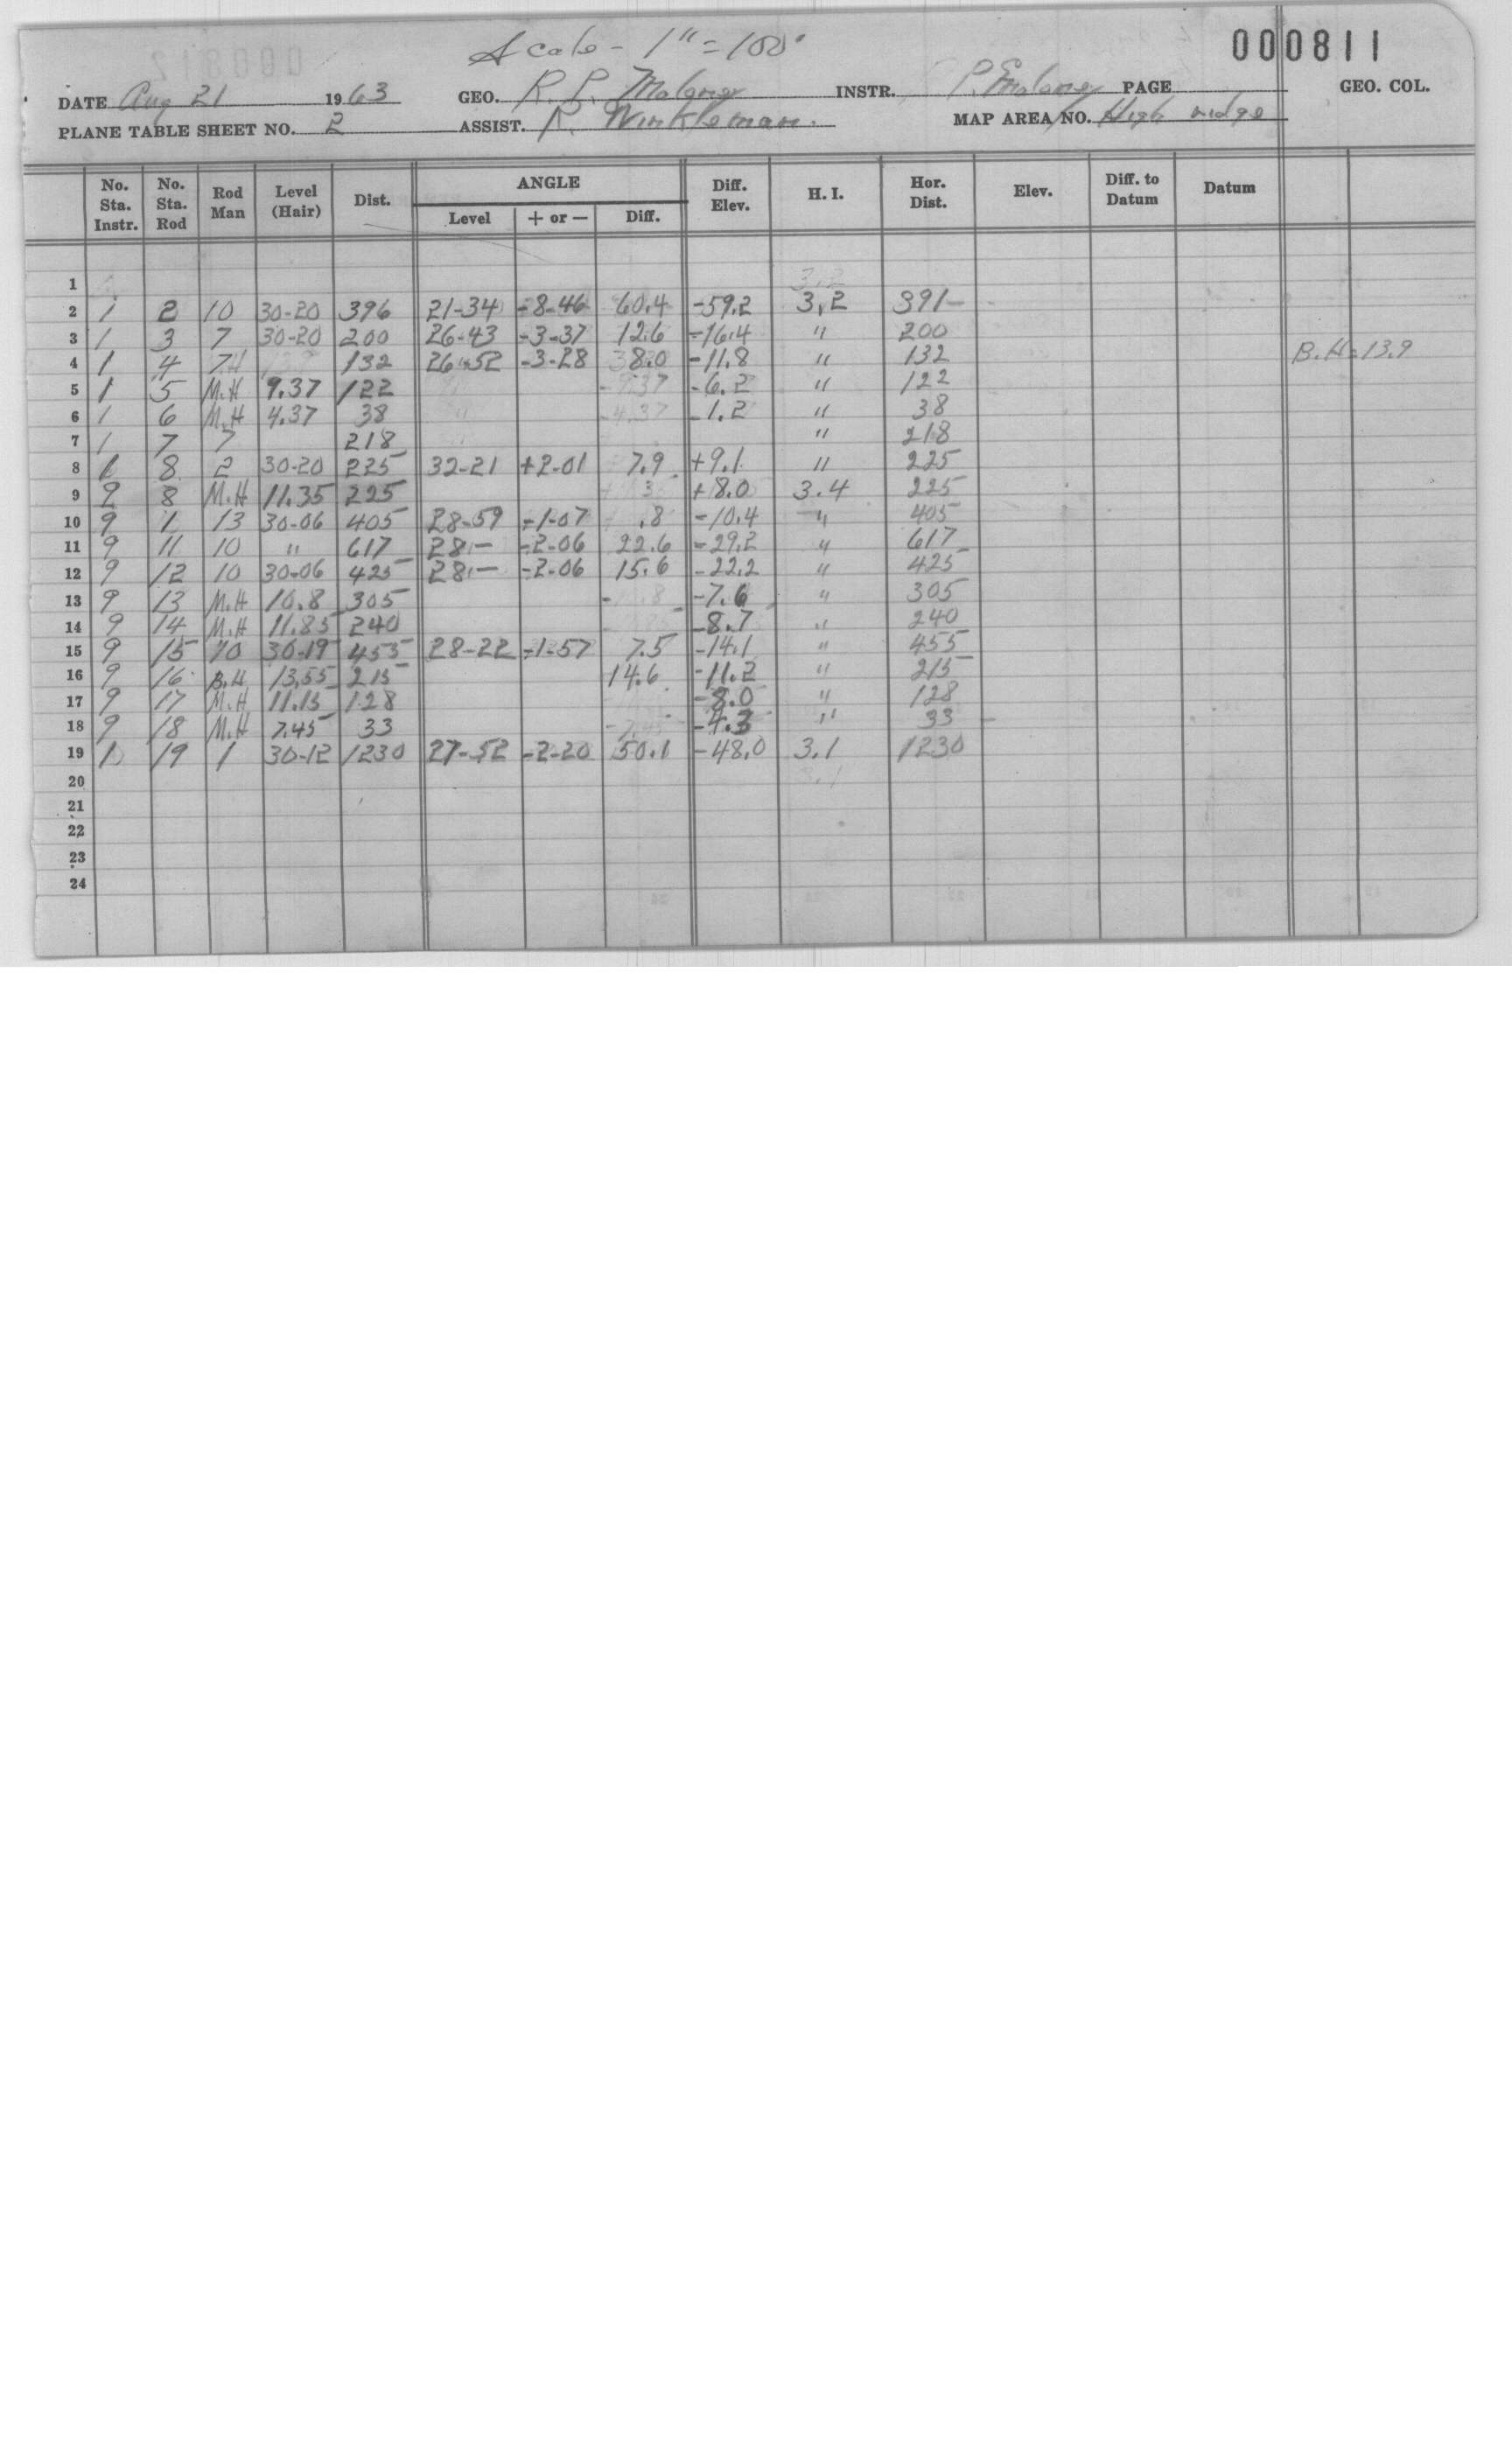 Scale - 1" = 100' 000811
DATE Aug 21 1963 GEO. R. P. Maloney INSTR. P. Maloney PAGE GEO. COL.
PLANE TABLE SHEET NO. 2 ASSIST. R. Winkleman. MAP AREA NO. High ridge
No. Sta. Instr. No. Sta. Rod Rod Man Level (Hair) Dist. ANGLE Level + or — Diff. Diff. Elev. H. I. Hor. Dist. Elev. Diff. to Datum Datum
1
2 1 2 10 30-20 396 21-34 -8-46 60.4 -59.2 3.2 391
3 1 3 7 30-20 200 26-43 -3-37 12.6 -16.4 " 200
4 1 4 7 132 26-52 -3-28 8.0 -11.8 " 132 B.H=13.9
5 1 5 M.H 9.37 122 -6.2 " 122
6 1 6 M.H 4.37 38 -4.37 -1.2 " 38
7 1 7 7 218 " 218
8 1 8 2 30-20 225 32-21 +2-01 7.9 +9.1 " 225
9 9 8 M.H 11.35 225 +8.0 3.4 225
10 9 1 13 30-06 405 28-59 -1-07 .8 -10.4 " 405
11 9 11 10 " 617 28.- -2-06 22.6 -29.2 " 617
12 9 12 10 30-06 425 28.- -2-06 15.6 -22.2 " 425
13 9 13 M.H 10.8 305 -7.6 " 305
14 9 14 M.H 11.85 240 -8.7 " 240
15 9 15 10 30-19 455 28-22 -1-57 7.5 -14.1 " 455
16 9 16 B.H 13.55 215 14.6 -11.2 " 215
17 9 17 M.H 11.15 128 -8.0 " 128
18 9 18 M.H 7.45 33 -4.3 " 33
19 10 19 1 30-12 1230 27-52 -2-20 50.1 -48.0 3.1 1230
20
21
22
23
24